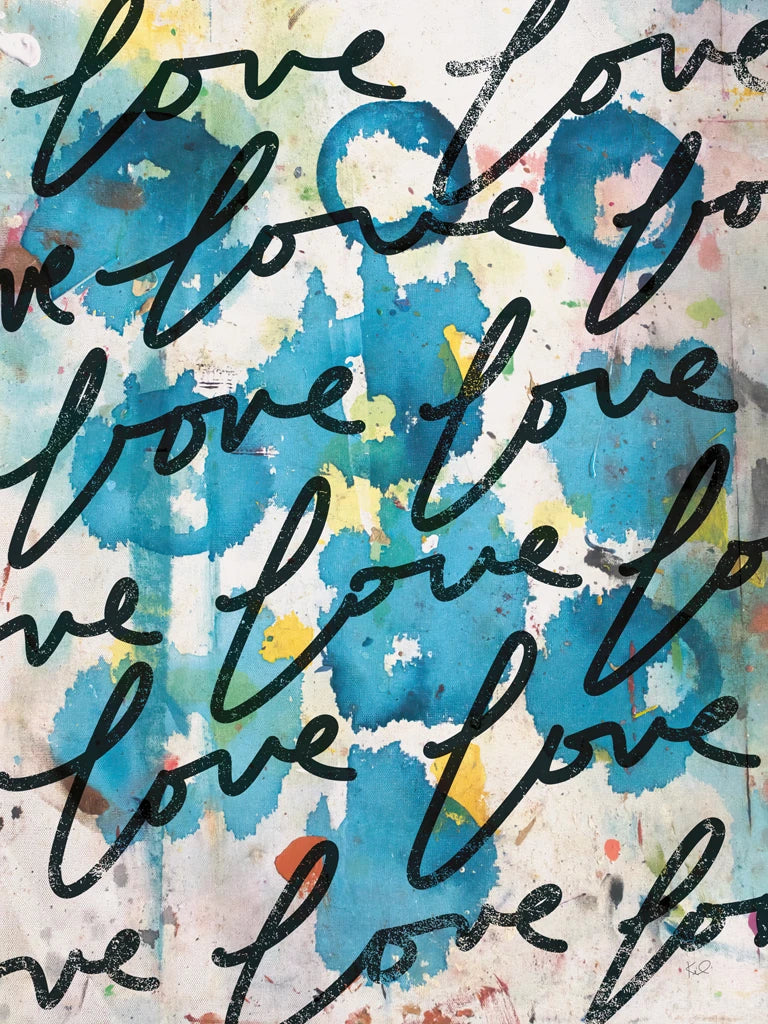 love love
love lo
ve
love love
love lo
ve
love love
love lo
ve